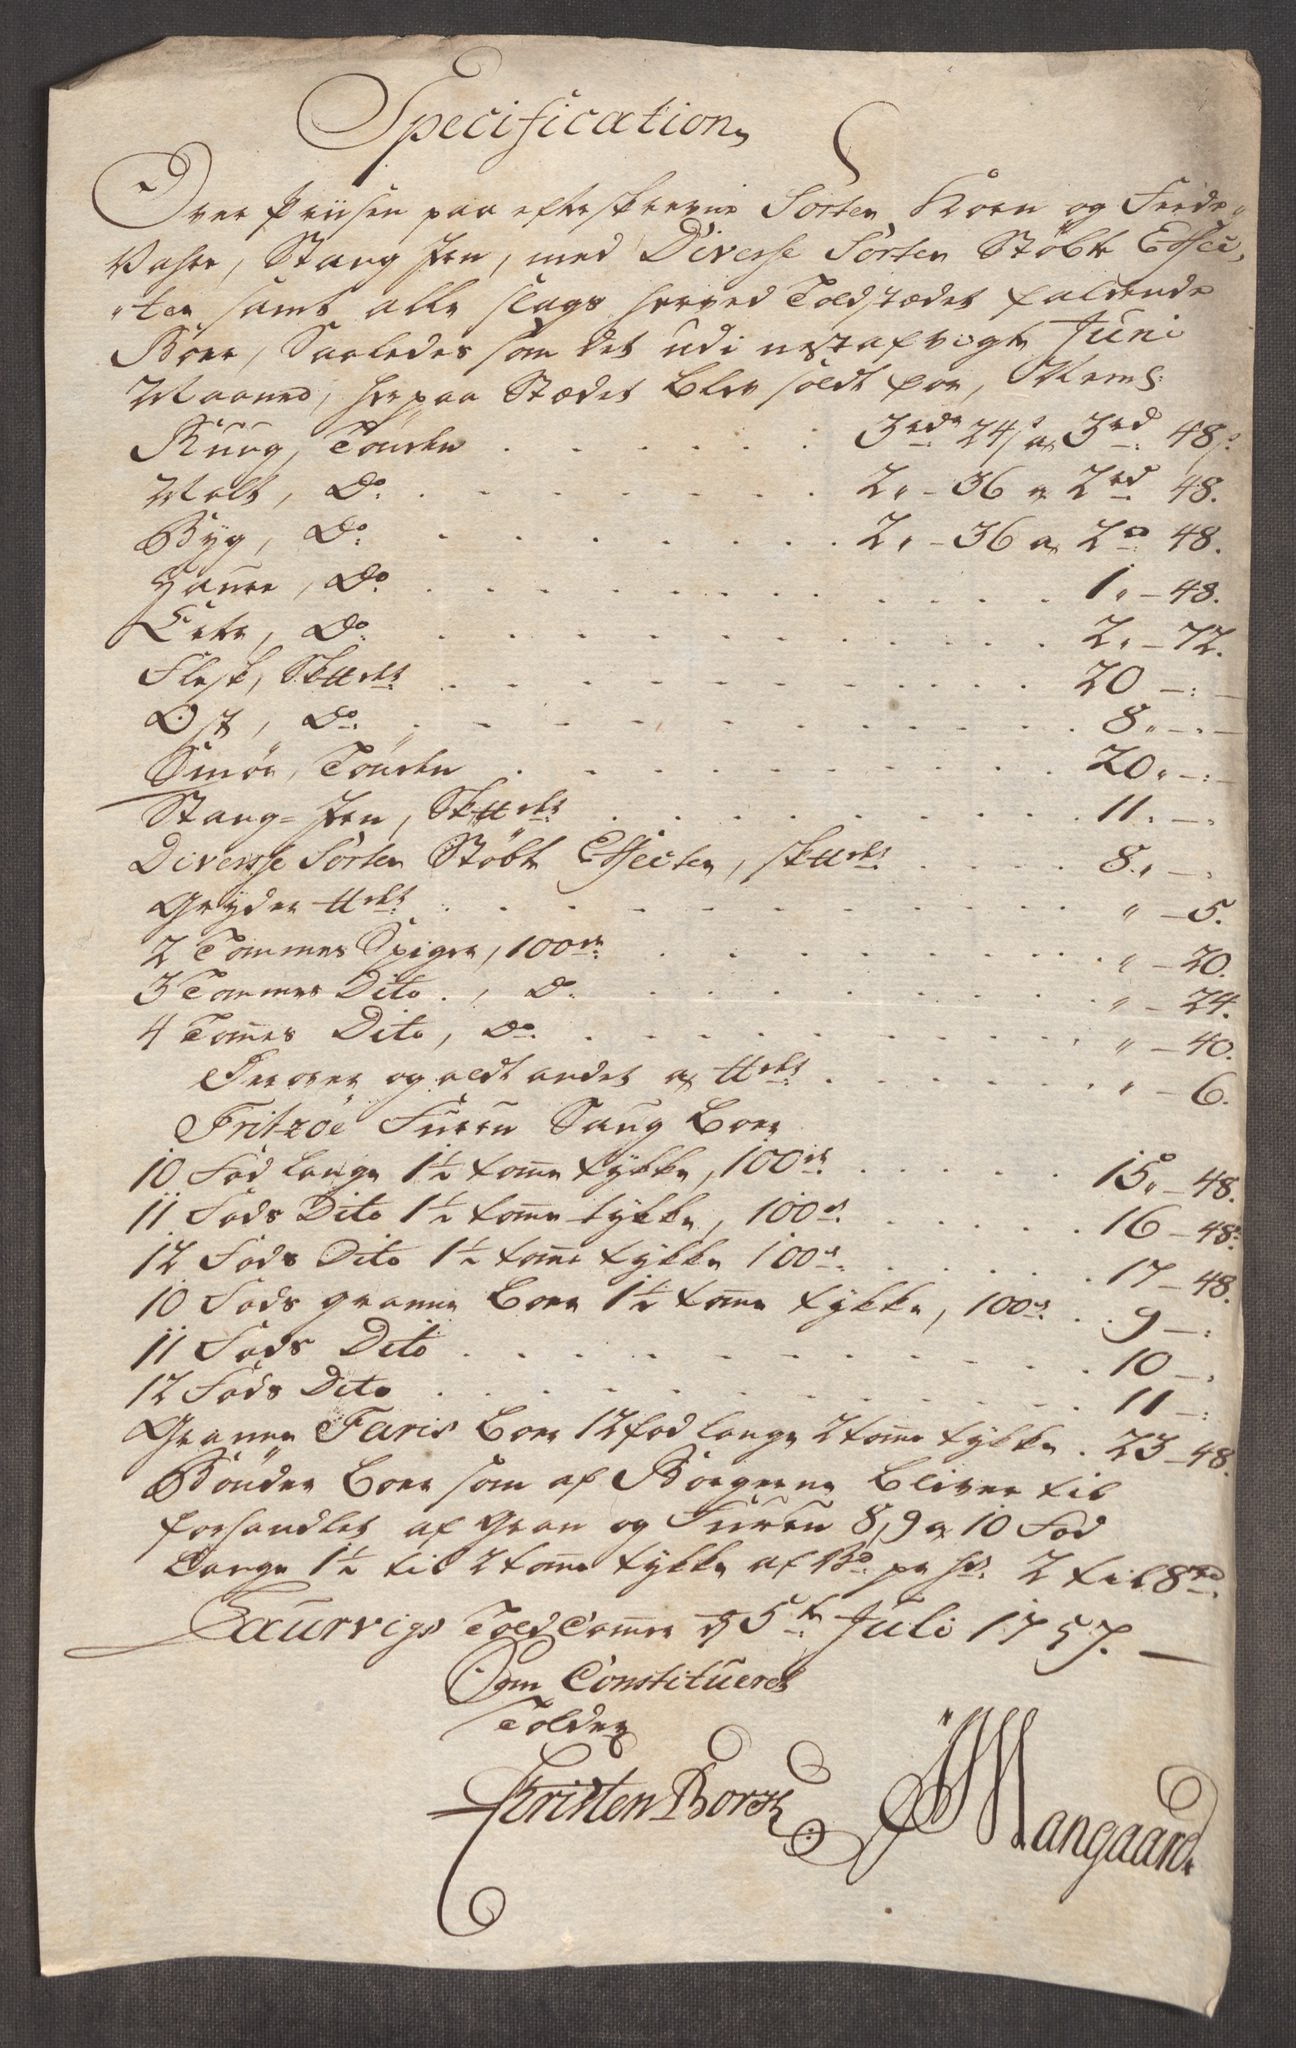 Specification
Over Priisen paa efterskrevne Sorter Korn og Feede
Vahre, Stang Jern, med Diverse Sorter Støbte Effec-
-ter samt alle slags herved Toldstædet faldende
Boer, Saaledes som det udi nestafvigte Juni
Maaned, her paa Stædet blev soldt for, Nemb:
Ruug, Tønden . . . . . . 3rdr 24s a 3rd 48s.
Malt, Do. . . . . . . . 2„ - 36 a 2rd 48.
Byg, Do. . . . . . . . 2„ - 36 a 2rd 48.
Haure, Do. . . . . . . . 1„ - 48.
Erter, Do. . . . . . . . 2„ - 72.
Flesk, Sk℔dt . . . . . . . 20 - : -
Ost, Do. . . . . . . . 8„ - . -
Smør, Tønden . . . . . . . 20„ - : -
Stang-Jern, Sk℔dt . . . . . . . 11. - .
Diversse Sorter Støbte Effecter, sk℔dt . . . . 8„ - .
Gryder ℔dt . . . . . . . „ - 5.
2 Tommes Spiger, 100de . . . . . . . „ - 20.
3 Tommes Dito . , Do. . . . . . . „ - 24.
4 Tomes Dito, Do. . . . . . . „ - 40.
og aldt andet a ℔dt . . . . . . „ - 6.
Fritzøe Furru Saug Boer
10 Fod lange 1½ tome tykke, 100de . . . . . 15„ - 48.
11 Fods Dito 1½ tome tykke, 100de . . . . . 16 - 48.
12 Fods Dito 1½ tome tykke 100de . . . . . 17 - 48.
10 Fods granne Boer 1½ tome tykke, 100de . . 9 - :
11 Fods Dito . . . . . . . 10 - .
12 Fods Dito . . . . . . . 11 - :
Granne Faris Boer 12 fod lange 2 tome tykke . 23 - 48.
Bønder Boer som af Borgerne bliver til
forhandlet af Gran og Furru 8, 9 a 10 Fod
Lange 1½ til 2 tome tykke af 2 til 8rd
Laurvigs Told Camer d 5te Juli 1757.
Som Constitueret
Tolder
Kristen Borch Mangaard